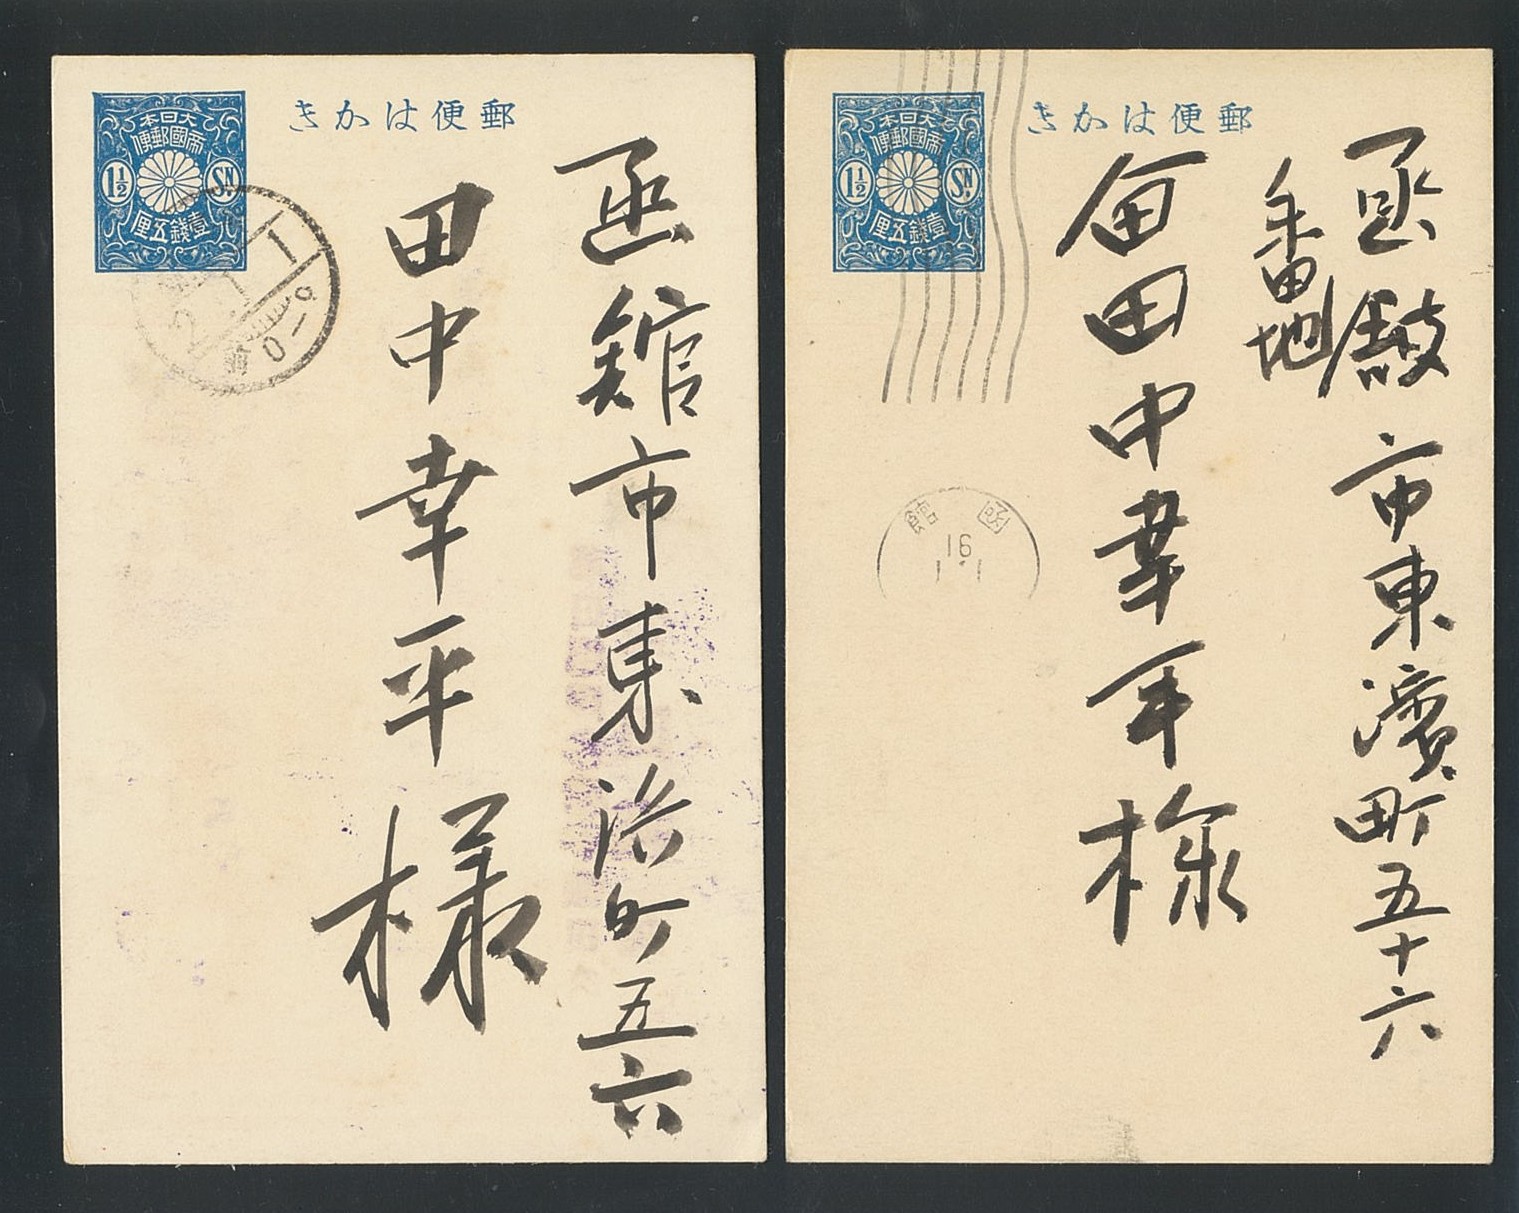 郵便はかき
大日本
帝國郵便
1½
SN.
壹錢五厘
函館市東浜町五六
田中幸平様
前0-9
郵便はかき
大日本
帝國郵便
1½
SN.
壹錢五厘
函館市東濱町五十六
番地
田中幸平様
函館
16
1.1